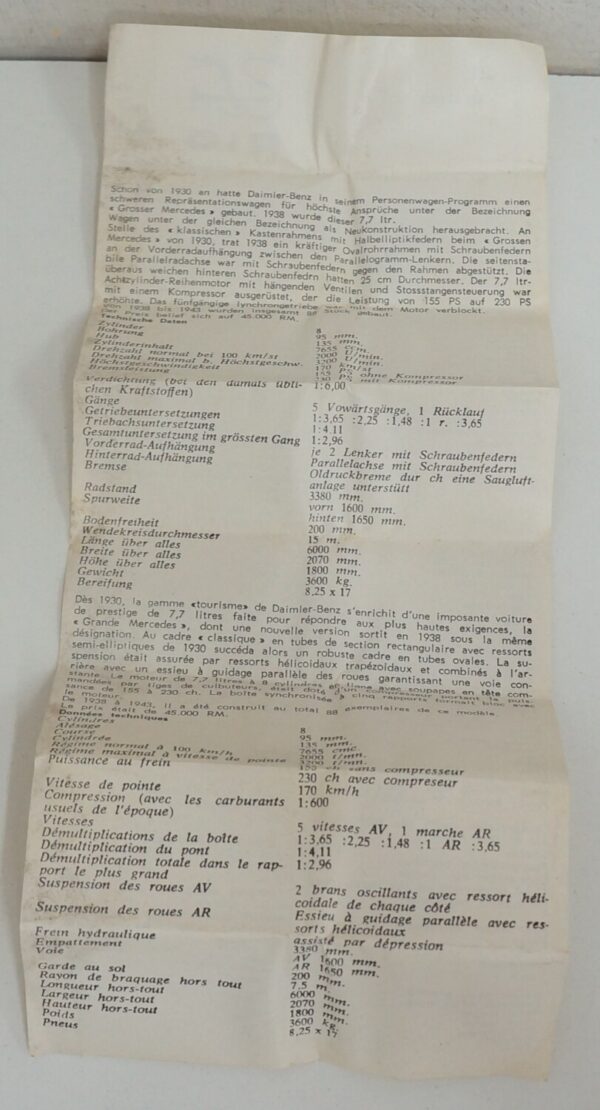 Schon von 1930 an hatte Daimler-Benz in seinem Personenwagen-Programm einen
schweren Repräsentationswagen für höchste Ansprüche unter der Bezeichnung
« Grosser Mercedes » gebaut. 1938 wurde dieser 7,7 ltr.
Wagen unter der gleichen Bezeichnung als Neukonstruktion herausgebracht. An
Stelle des « klassischen » Kastenrahmens mit Halbelliptikfedern beim « Grossen
Mercedes » von 1930, trat 1938 ein kräftiger Ovalrohrrahmen mit Schraubenfedern
an der Vorderradaufhängung zwischen den Parallelogramm-Lenkern. Die seitensta-
bile Parallelradachse war mit Schraubenfedern gegen den Rahmen abgestützt. Die
überaus weichen hinteren Schraubenfedrn hatten 25 cm Durchmesser. Der 7,7 ltr-
Achtzylinder-Reihenmotor mit hängenden Ventilen und Stossstangensteuerung war
mit einem Kompressor ausgerüstet, der die Leistung von 155 PS auf 230 PS
erhöhte. Das fünfgängige lynchrongetriebe war mit dem Motor verblockt.
Von 1938 bis 1943 wurden insgesamt 88 Stück gebaut.
Der Preis belief sich auf 45.000 RM.
Technische Daten
Zylinder 8
Bohrung 95 mm.
Hub 135 mm.
Zylinderinhalt 7655 ccm.
Drehzahl normal bei 100 km/st 2000 U/min.
Drehzahl maximal b. Höchstgeschw. 3200 U/min.
Höchstgeschwindigkeit 170 km/st
Bremsleistung 155 PS ohne Kompressor
230 PS mit Kompressor
Verdichtung (bei den damals übli- 1:6,00
chen Kraftstoffen)
Gänge 5 Vowärtsgänge, 1 Rücklauf
Getriebeuntersetzungen 1:3,65 :2,25 :1,48 :1 r. :3,65
Triebachsuntersetzung 1:4.11
Gesamtuntersetzung im grössten Gang 1:2,96
Vorderrad-Aufhängung je 2 Lenker mit Schraubenfedern
Hinterrad-Aufhängung Parallelachse mit Schraubenfedern
Bremse Oldruckbreme dur ch eine Saugluft-
anlage unterstütt
Radstand 3380 mm.
Spurweite vorn 1600 mm.
hinten 1650 mm.
Bodenfreiheit 200 mm.
Wendekreisdurchmesser 15 m.
Länge über alles 6000 mm.
Breite über alles 2070 mm.
Höhe über alles 1800 mm.
Gewicht 3600 kg.
Bereifung 8,25 x 17
Dès 1930, la gamme «tourisme» de Daimler-Benz s'enrichit d'une imposante voiture
de prestige de 7,7 litres faite pour répondre aux plus hautes exigences, la
« Grande Mercedes », dont une nouvelle version sortit en 1938 sous la même
désignation. Au cadre « classique » en tubes de section rectangulaire avec ressorts
semi-elliptiques de 1930 succéda alors un robuste cadre en tubes ovales. La su-
spension était assurée par ressorts hélicoïdaux trapézoïdaux et combinés à l'ar-
rière avec un essieu à guidage parallèle des roues garantissant une voie con-
stante. Le moteur de 7,7 litres à 8 cylindres en ligne avec soupapes en tête com-
mandées par tiges de culbuteurs, était doté d'un compresseur portant la puis-
sance de 155 à 230 ch. La boîte synchronisée à cinq rapports formait bloc avec
le moteur.
De 1938 à 1943, il a été construit au total 88 exemplaires de ce modèle.
Le prix était de 45.000 RM.
Données techniques
Cylindres 8
Alésage 95 mm.
Course 135 mm.
Cylindrée 7655 cmc.
Régime normal à 100 km/h 2000 t/mn.
Régime maximal à vitesse de pointe 3200 t/mn.
Puissance au frein 155 ch sans compresseur
230 ch avec compreseur
Vitesse de pointe 170 km/h
Compression (avec les carburants 1:600
usuels de l'époque)
Vitesses 5 vitesses AV, 1 marche AR
Démultiplications de la boîte 1:3,65 :2,25 :1,48 :1 AR :3,65
Démultiplication du pont 1:4,11
Démultiplication totale dans le rap- 1:2,96
port le plus grand
Suspension des roues AV 2 brans oscillants avec ressort héli-
coidale de chaque côté
Suspension des roues AR Essieu à guidage parallèle avec res-
sorts hélicoidaux
Frein hydraulique assisté par dépression
Empattement 3380 mm.
Voie AV 1600 mm.
AR 1650 mm.
Garde au sol 200 mm.
Rayon de braquage hors tout 7.5 m.
Longueur hors-tout 6000 mm.
Largeur hors-tout 2070 mm.
Hauteur hors-tout 1800 mm.
Poids 3600 kg.
Pneus 8,25 x 17